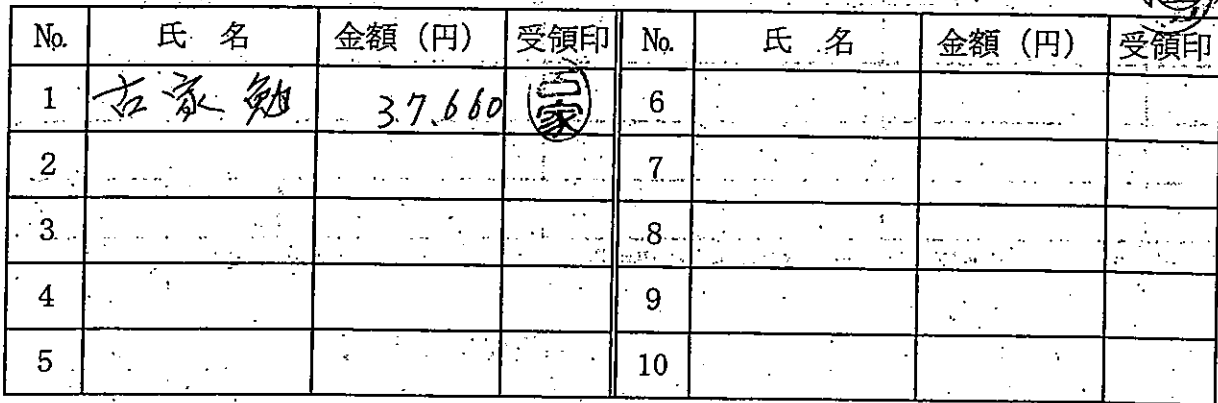 No. 氏名 金額（円） 受領印 No. 氏名 金額（円） 受領印
1 古家勉 37,660 古家 6
2 7
3 8
4 9
5 10